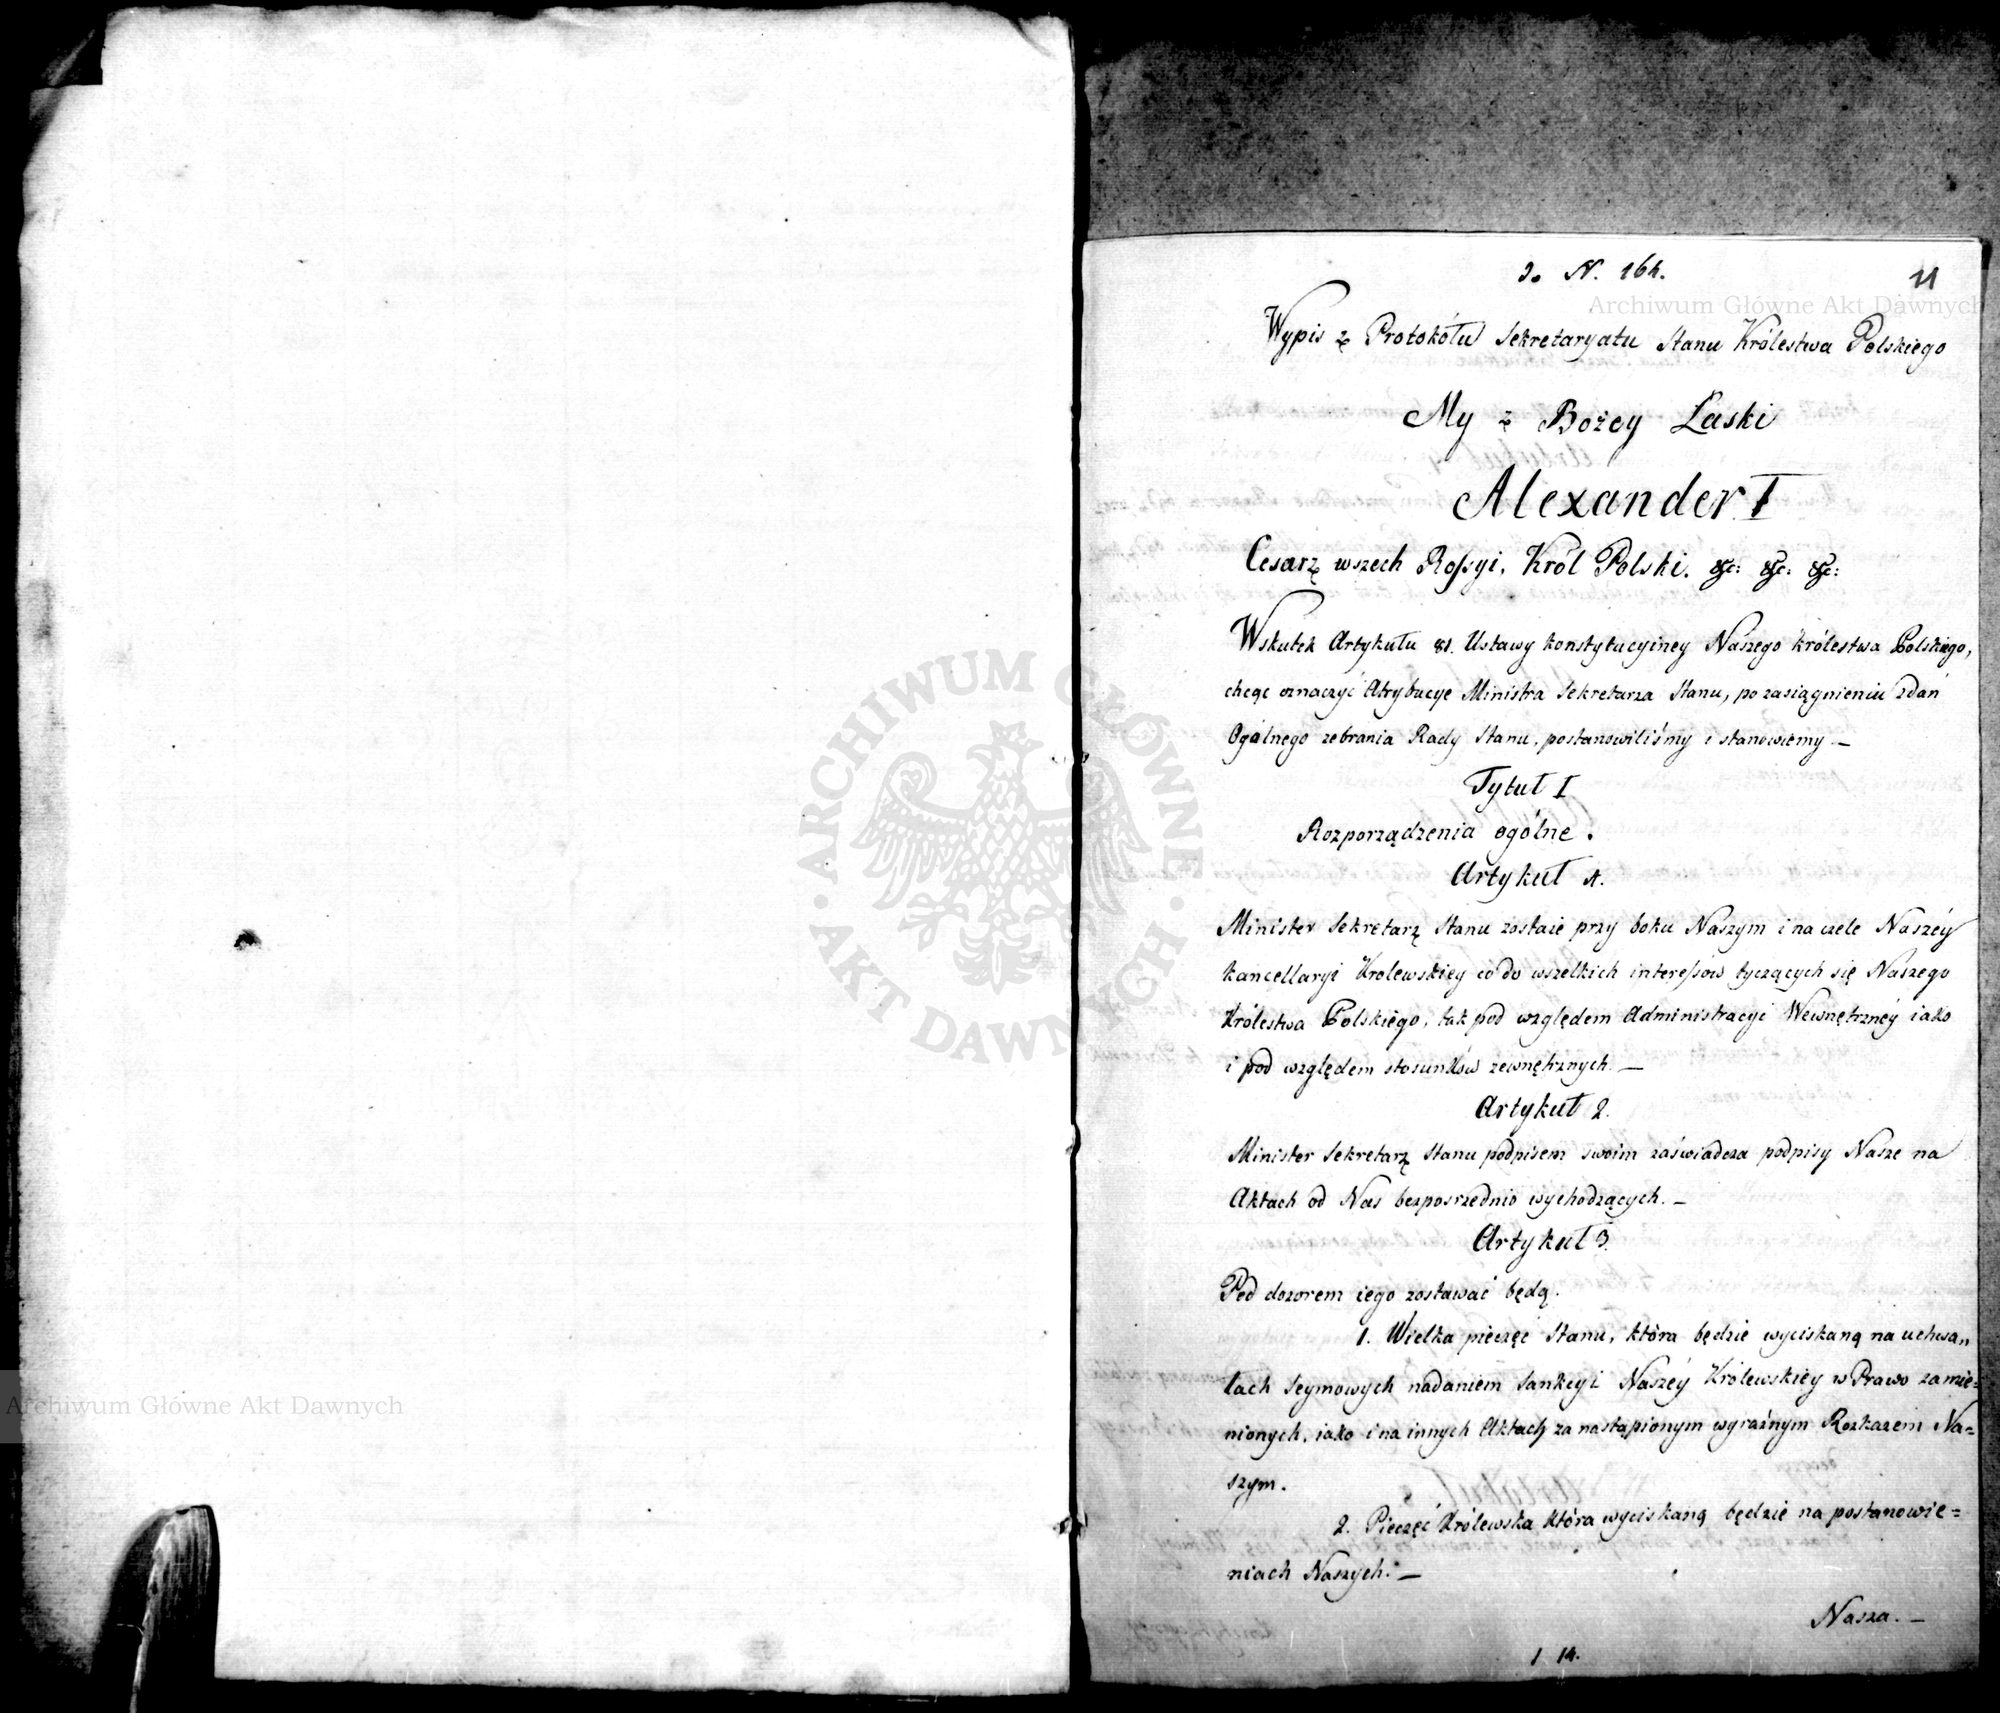 do N. 164.
11
Wypis z Protokółu Sekretaryatu Stanu Królestwa Polskiego
My z Bożey Łaski
Alexander I
Cesarz wszech Rossyi, Król Polski. &c: &c: &c:
Wskutek Artykułu 81. Ustawy konstytucyiney Naszego królestwa Polskiego,
chcąc oznaczyć Atrybucye Ministra Sekretarza Stanu, po zasiągnieniu zdań
Ogólnego zebrania Rady Stanu, postanowiliśmy i stanowiemy —
Tytuł I
Rozporządzenia ogólne.
Artykuł 1.
Minister Sekretarz Stanu zostaie przy boku Naszym i na czele Naszéy
kancellaryi Krolewskiey co do wszelkich interessów tyczących się Naszego
Królestwa Polskiego, tak pod względem Administracyi Wewnętrznéy iako
i pod względem stosunków zewnętrznych. —
Artykuł 2.
Minister Sekretarz Stanu podpisem swoim zaświadcza podpisy Nasze na
Aktach od Nas bezposrzednio wychodzących. —
Artykuł 3.
Pod dozorem iego zostawać będą.
1. Wielka pieczęć Stanu, która będzie wyciskaną na uchwa„
łach Seymowych nadaniem Sankcyi Naszéy Królewskiéy w Prawo zamie=
nionych, iako i na innych Aktach za nastąpionym wyraźnym Rozkazem Na=
szym.
2. Pieczęć Królewska która wyciskaną będzie na postanowie=
niach Naszych. —
Nasza. —
1 14.
Archiwum Główne Akt Dawnych
Archiwum Główne Akt Dawnych
ARCHIWUM GŁÓWNE · AKT DAWNYCH ·